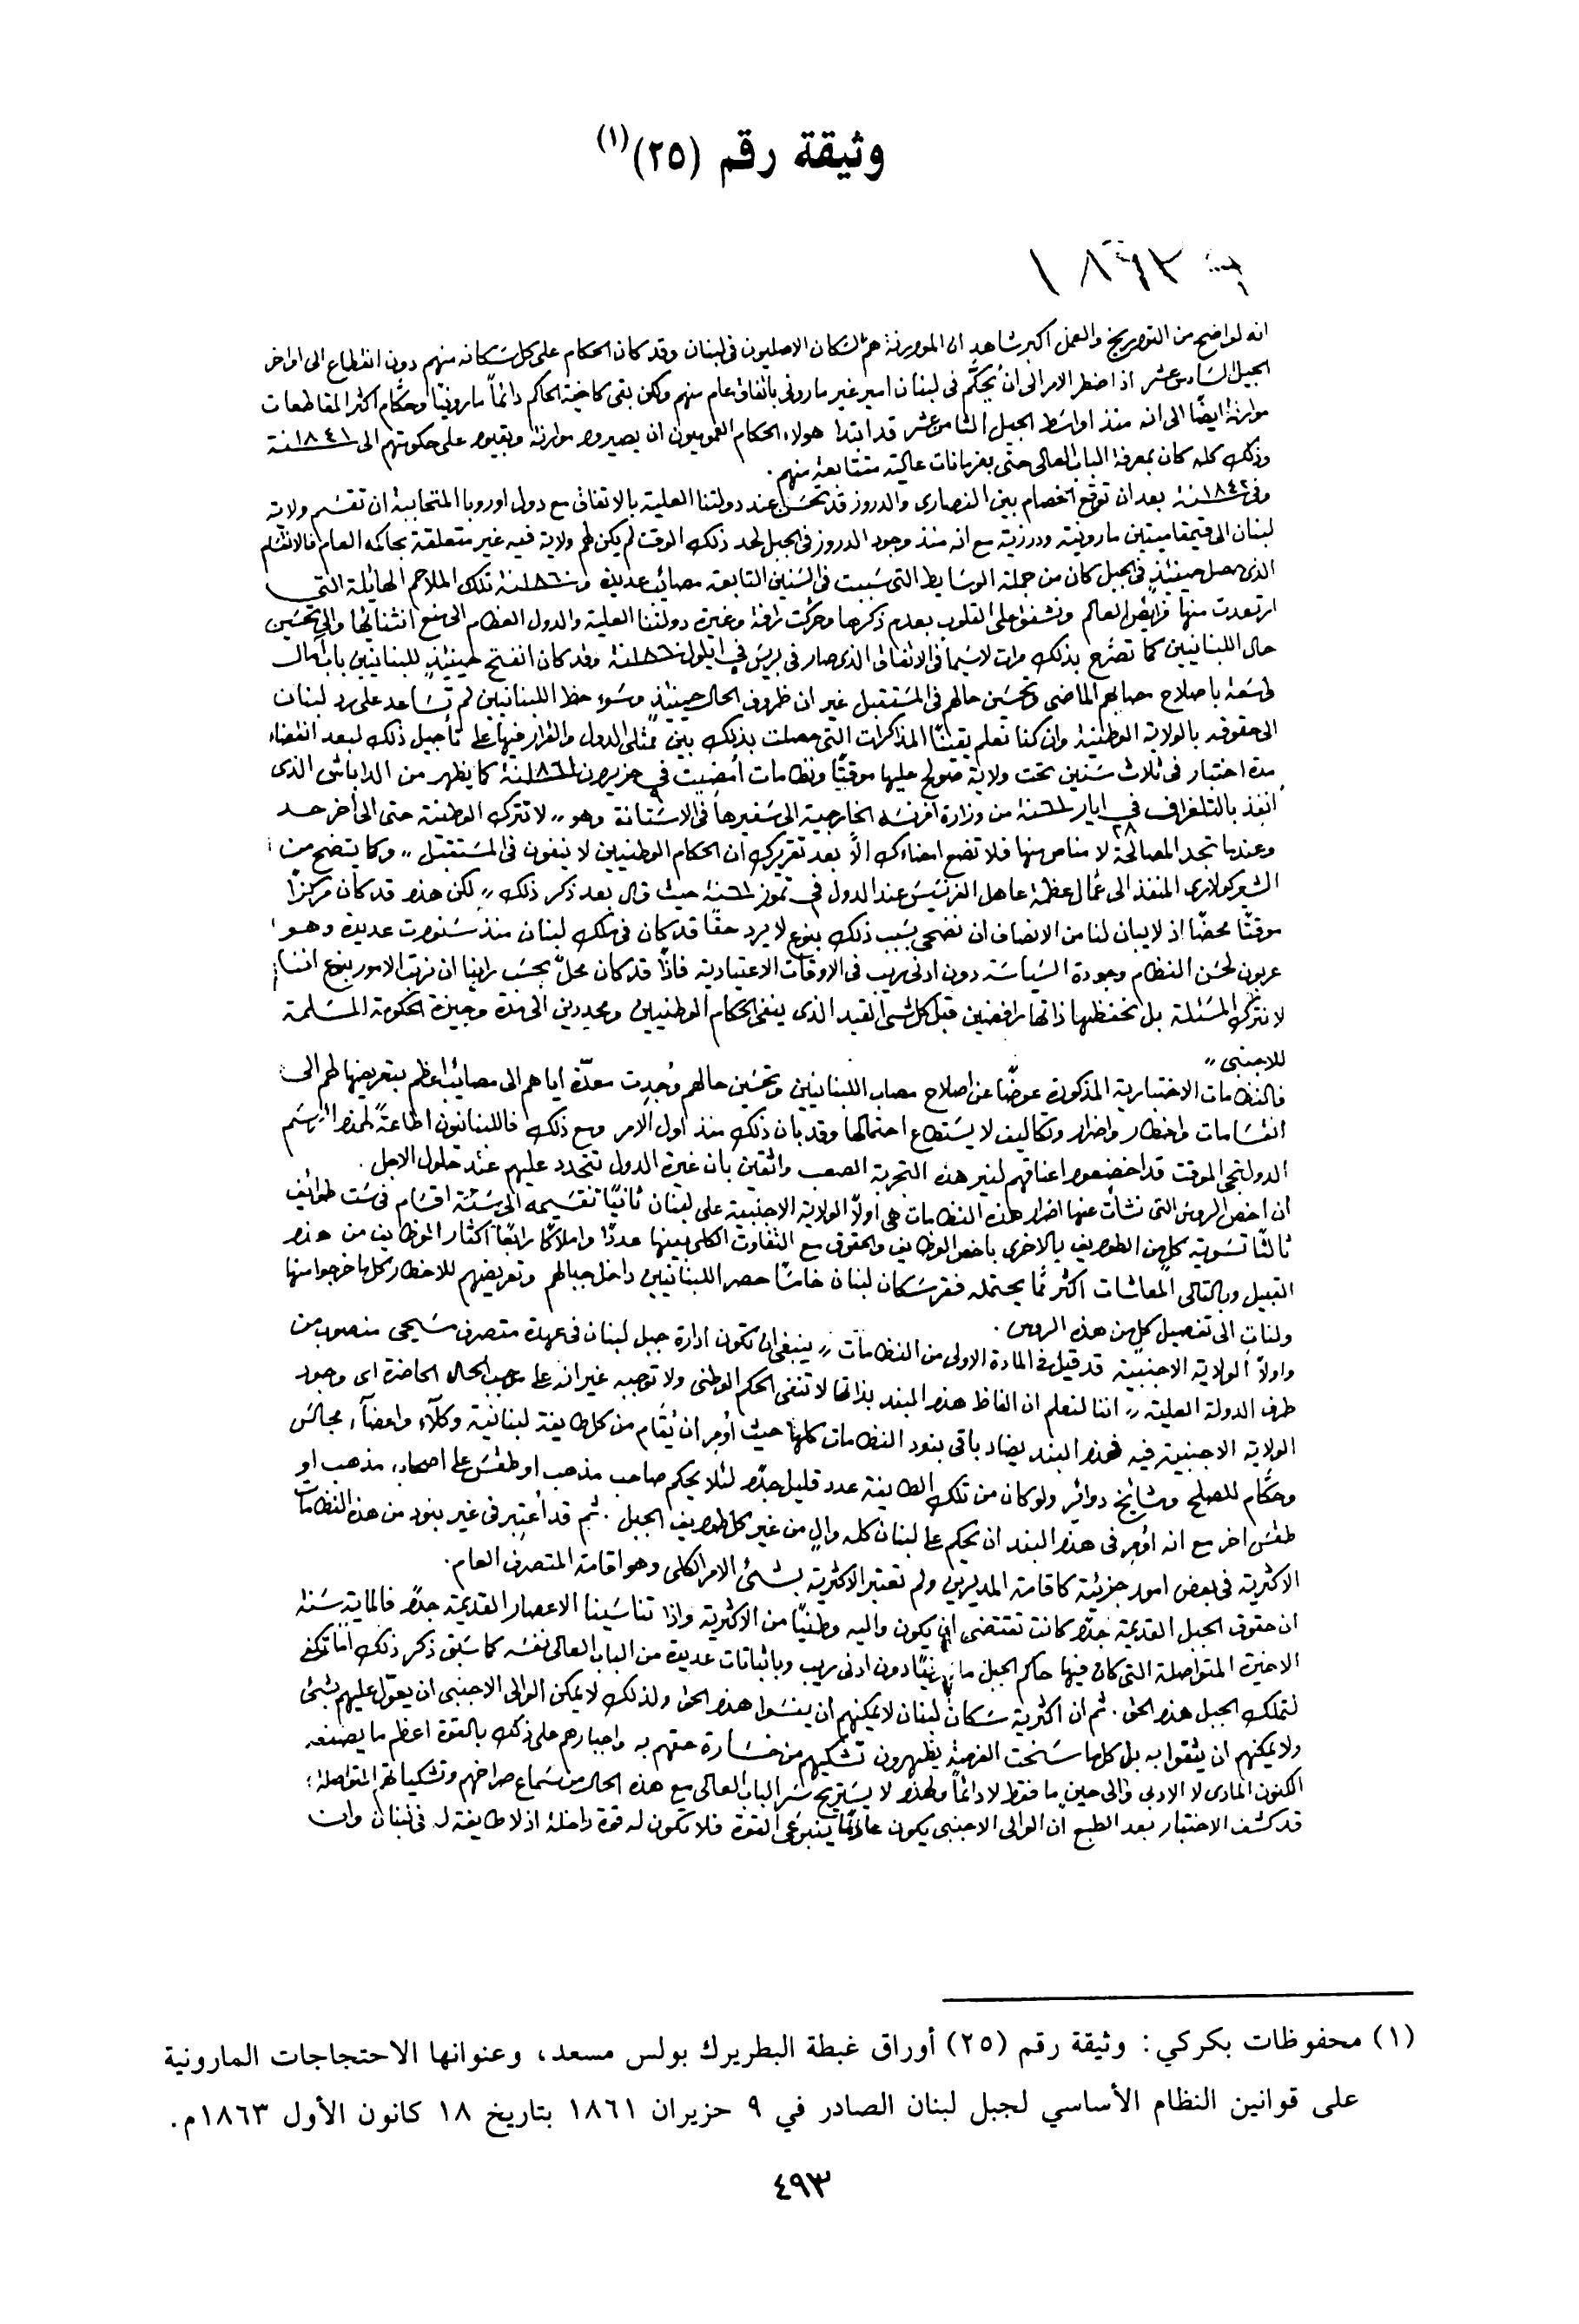 وثيقة رقم (٢٥)(١)
١٨٦٣
انه لواضح من التواريخ والعقل اكبر شاهد ان الموارنة هم السكان الاصليون في لبنان وقد كان الحكام على كل سكانه منهم دون انقطاع الى اواخر
الجيل السادس عشر اذ اضطر الامر الى ان يحكم في لبنان امير غير ماروني باتفاق عام منهم ولكن بقى كاخية الحاكم دائماً مارونياً وحكام اكثر المقاطعات
موارنة ايضاً الى انه منذ اواسط الجيل الثامن عشر قد ابتدا هولاء الحكام العموميون ان يصيروا موارنة وبقيوا على حكومتهم الى سنة ١٨٤١
وذلك كله كان بمعرفة الباب العالي حتى بفرمانات عالية متتابعة منهم.
وفي سنة ١٨٤٢ بعد ان توقع الخصام بين النصارى والدروز قد تحسن عند دولتنا العلية بالاتفاق مع دول اوروبا المتحاببة ان تقسم ولاية
لبنان الى قيمقاميتين مارونية ودرزية مع انه منذ وجود الدروز في الجبل لحد ذلك الوقت لم يكن لهم ولاية فيه غير متعلقة بحاكمه العام فالانقسام
الذي حصل حينئذٍ في الجبل كان من جملة الوسايط التي سببت في السنين التابعة مصائب عديدة وسنة ١٨٦٠ تلك الملاحم الهائلة التي
ارتعدت منها فرايص العالم ونشفق على القلوب بعدم ذكرها وحركت رافة وغيرة دولتنا العلية والدول العظام الى منع انثنائها والى تحسين
حال اللبنانيين كما تصرح بذلك مرات لاسيما في الاتفاق الذي صار في بريس في ايلول سنة ١٨٦٠ وقد كان انفتح حينئذٍ للبنانيين باب امال
واسعة باصلاح مصابهم الماضي وتحسن حالهم في المستقبل غير ان ظروف الحال حينئذٍ وسوء حظ اللبنانيين لم تساعد على رد لبنان
الى حقوقه بالولاية الوطنية وان كنا نعلم يقيناً المذاكرات التي حصلت بذلك بين ممثلي الدول والقرار فيها على تأجيل ذلك لبعد انقضاء
مدة اختبار في ثلاث سنين تحت ولاية صولح عليها موقتاً ونظامات أمضيت في ٩ حزيران سنة ١٨٦١ كما يظهر من الداباش الذي
انفذ بالتلغراف في ٢٨ ايار سنة ٦١ من وزارة افرنسه الخارجية الى سفيرها في الاستانة وهو ,, لا تترك الوطنية حتى الى أخر حد
وعندما تجد المصالحة لا مناص منها فلا تضع امضاءك الا بعد تقريرك ان الحكام الوطنيين لا ينفون في المستقبل ,, وكما يتضح من
السيركولاري المنفذ الى عمال عظمة عاهل الفرنسيس عند الدول في تموز سنة ٦١ حيث قال بعد ذكر ذلك ,, لكن هذا قد كان مركزاً
موقتاً محضاً اذ لا يبان لنا من الانصاف ان نضحي بسبب ذلك بنوع لا يرد حقاً قد كان في ملك لبنان منذ سنوات عديدة وهو
عربون لحسن النظام وجودة السياسة دون ادنى ريب في الاوقات الاعتيادية فاذاً قد كان محلٌ بحسب راينا ان نرتب الامور بنوع اننا
لا نترك المسئلة بل نحفظها ذاتها رافضين قبل كل شي القيد الذي ينفي الحكام الوطنيين ومحددين الى مدة وجيزة الحكومة المسلمة
للاجنبي ,,
فالنظامات الاختبارية المذكورة عوضاً عن اصلاح مصاب اللبنانيين وتحسين حالهم وُجدت معدّة اياهم الى مصائب اعظم بتعريضها لهم الى
انقسامات واخطار واضرار وتكاليف لا يستطاع احتمالها وقد بان ذلك منذ اول الامر ومع ذلك فاللبنانيون اطاعةً لهذا الرسم
الدولتجي الموقت قد اخضعوا اعناقهم لنير هذه التجربة الصعب واثقين بان غيرة الدول تتجدد عليهم عند حلول الاجل.
ان اخص الروس التي نشأت عنها اضرار هذه النظامات هي اولاً الولاية الاجنبية على لبنان ثانياً تقسيمه الى ستة اقسام في ست طوائف
ثالثاً تسوية كل من الطوايف بالاخرى باخص الوظايف والحقوق مع التفاوت الكلي بينها عدداً واملاكاً رابعاً اكثار الوظايف من هذا
القبيل وبالتالي المعاشات اكثر مما يحتمله فقر سكان لبنان خامساً حصر اللبنانيين داخل جبالهم وتعريضهم للاخطار كلما خرجوا منها
ولنات الى تفصيل كل من هذه الروس.
واولاً الولاية الاجنبية قد قيل في المادة الاولى من النظامات ,, ينبغي ان تكون ادارة جبل لبنان في عهدة متصرف مسيحي منصوب من
طرف الدولة العلية ,, اننا لنعلم ان الفاظ هذا البند بذاتها لا تنفي الحكم الوطني ولا توجبه غير انه على موجب الحال الحاضرة اي وجود
الولاية الاجنبية فيه فهذا البند يضاد باقي بنود النظامات كلها حيث أُمر ان يُقام من كل طايفة لبنانية وكلاء واعضاء مجالس
وحكام للصلح ومشايخ دوائر ولو كان من تلك الطايفة عدد قليل جدًا لئلا يحكم صاحب مذهب او طقس على اصحاب مذهب او
طقس اخر مع انه اؤمر في هذا البند ان يحكم على لبنان كله والٍ من غير كل طوايف الجبل. ثم قد أعتبر في غير بنود من هذه النظامات
الاكثرية في بعض امور جزئية كاقامة المديرين ولم تعتبر الاكثرية بشئ الامر الكلي وهو اقامة المتصرف العام.
ان حقوق الجبل القديمة جدًا كانت تقتضي ان يكون واليه وطنياً من الاكثرية واذا تناسينا الاعصار القديمة جدًا فالماية سنة
الاخيرة المتواصلة التي كان فيها حاكم الجبل مارونياً دون ادنى ريب وباثباتات عديدة من الباب العالي نفسه كما سبق ذكر ذلك اما تكفي
لتملك الجبل هذا الحق. ثم ان اكثرية سكان لبنان لا يمكنهم ان ينسوا هذا الحق ولذلك لا يمكن الوالي الاجنبي ان يعوّل عليهم بشئ
ولا يمكنهم ان يثقوا به بل كلما سنحت الفرصة يظهرون تشكيهم من خسارة حقهم به واجبارهم على ذلك بالقوة اعظم ما يصنعه
السكون المادي لا الادبي والى حين ما فقط لا دائماً ولهذا لا يستريح سر الباب العالي مع هذه الحال من سماع صراخهم وتشكياتهم المتواصلة:
قد كشف الاختبار بعد الطبع ان الوالي الاجنبي يكون عادماً ينبوعي القوة فلا تكون له قوة داخلة اذ لا طايفة له في لبنان وان
(١) محفوظات بكركي: وثيقة رقم (٢٥) أوراق غبطة البطريرك بولس مسعد، وعنوانها الاحتجاجات المارونية
على قوانين النظام الأساسي لجبل لبنان الصادر في ٩ حزيران ١٨٦١ بتاريخ ١٨ كانون الأول ١٨٦٣م.
٤٩٣